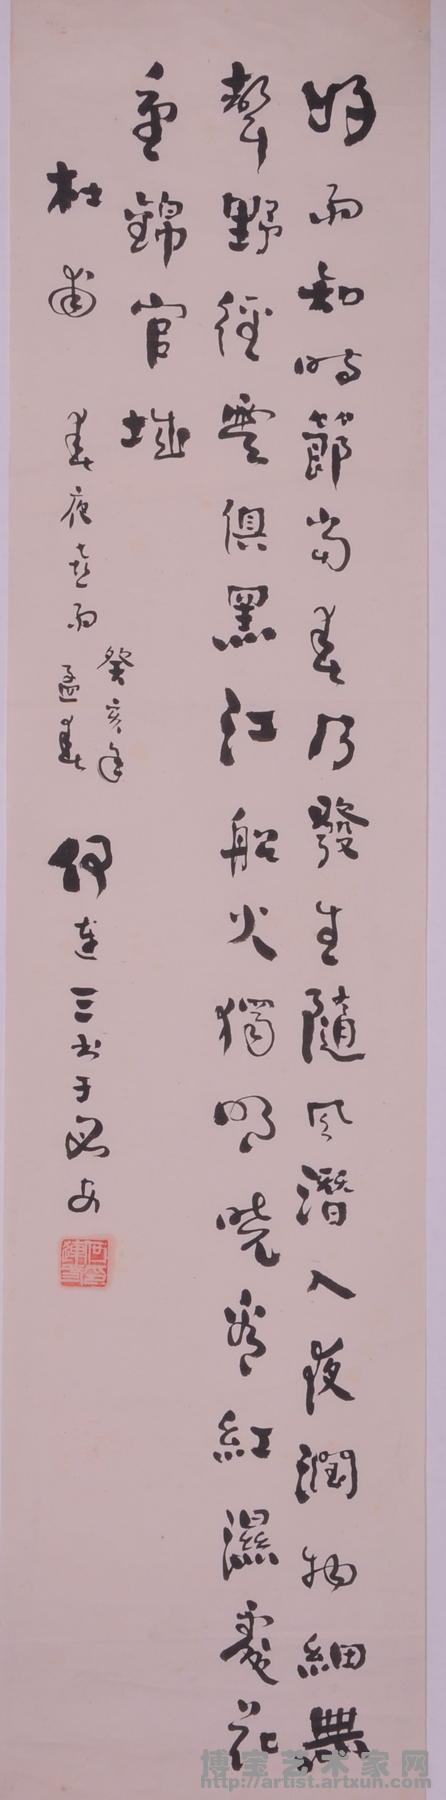 好雨知時節当春乃發生隨風潛入夜潤物細無
聲野徑雲俱黑江船火獨明曉看紅濕處花
重錦官城
杜甫 春夜喜雨 癸亥年
孟春 何連三书于
博宝艺术家网
http://artist.artxun.com